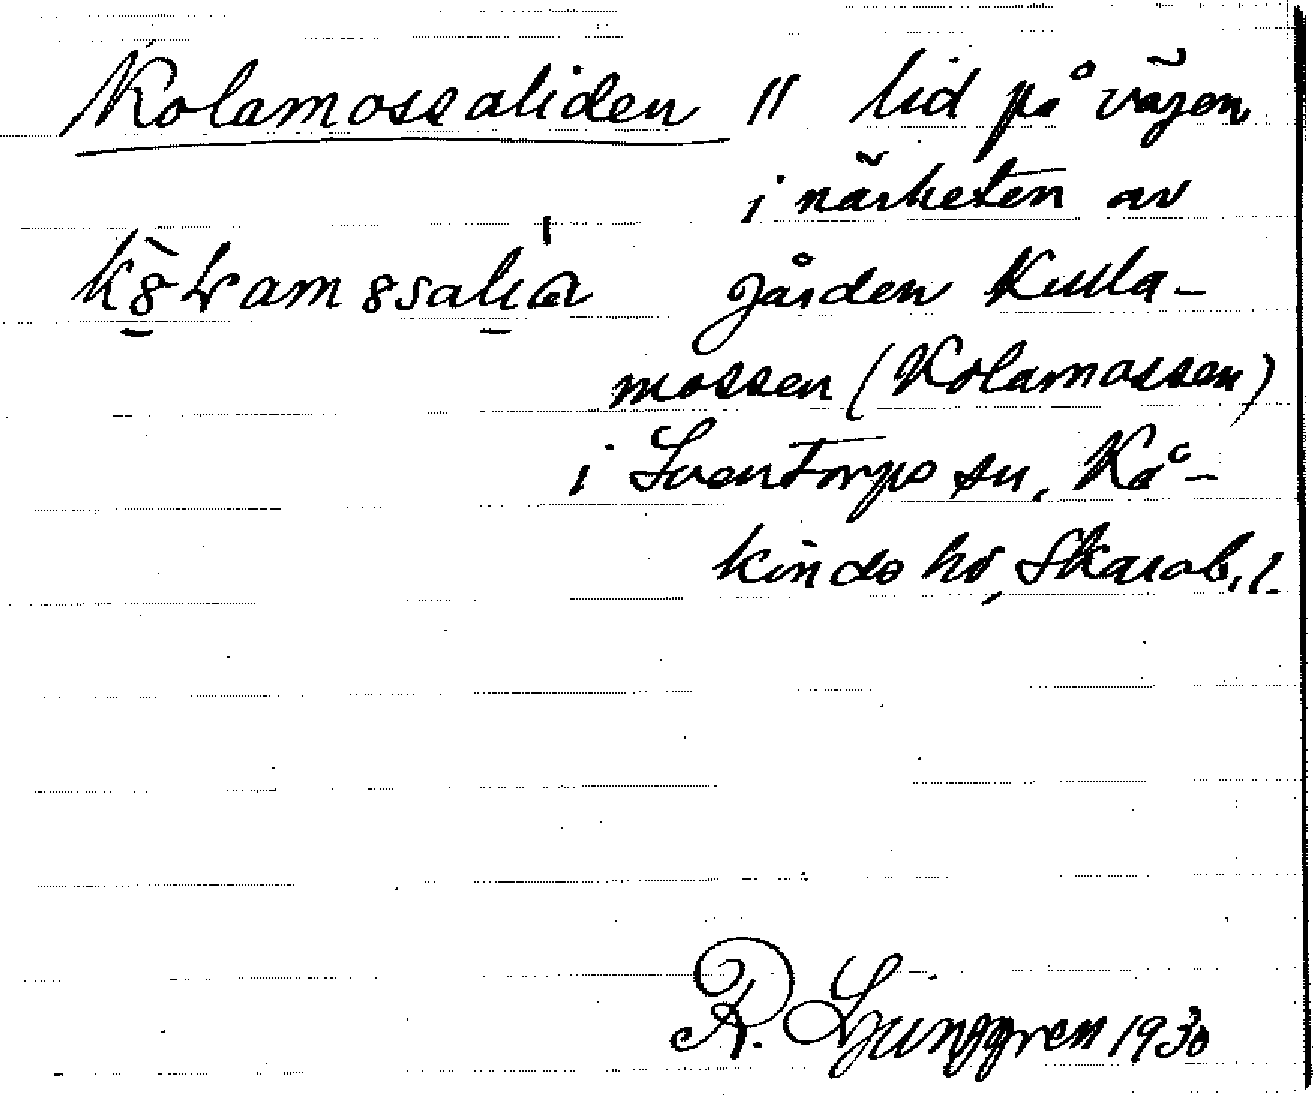 Kolamossaliden // lid på vägen
i närheten av
gården Kulla-
mossen (Kolamossen)
i Sventorps sn, Kå-
kinds hd, Skarab. l.
R. Ljunggren 1930